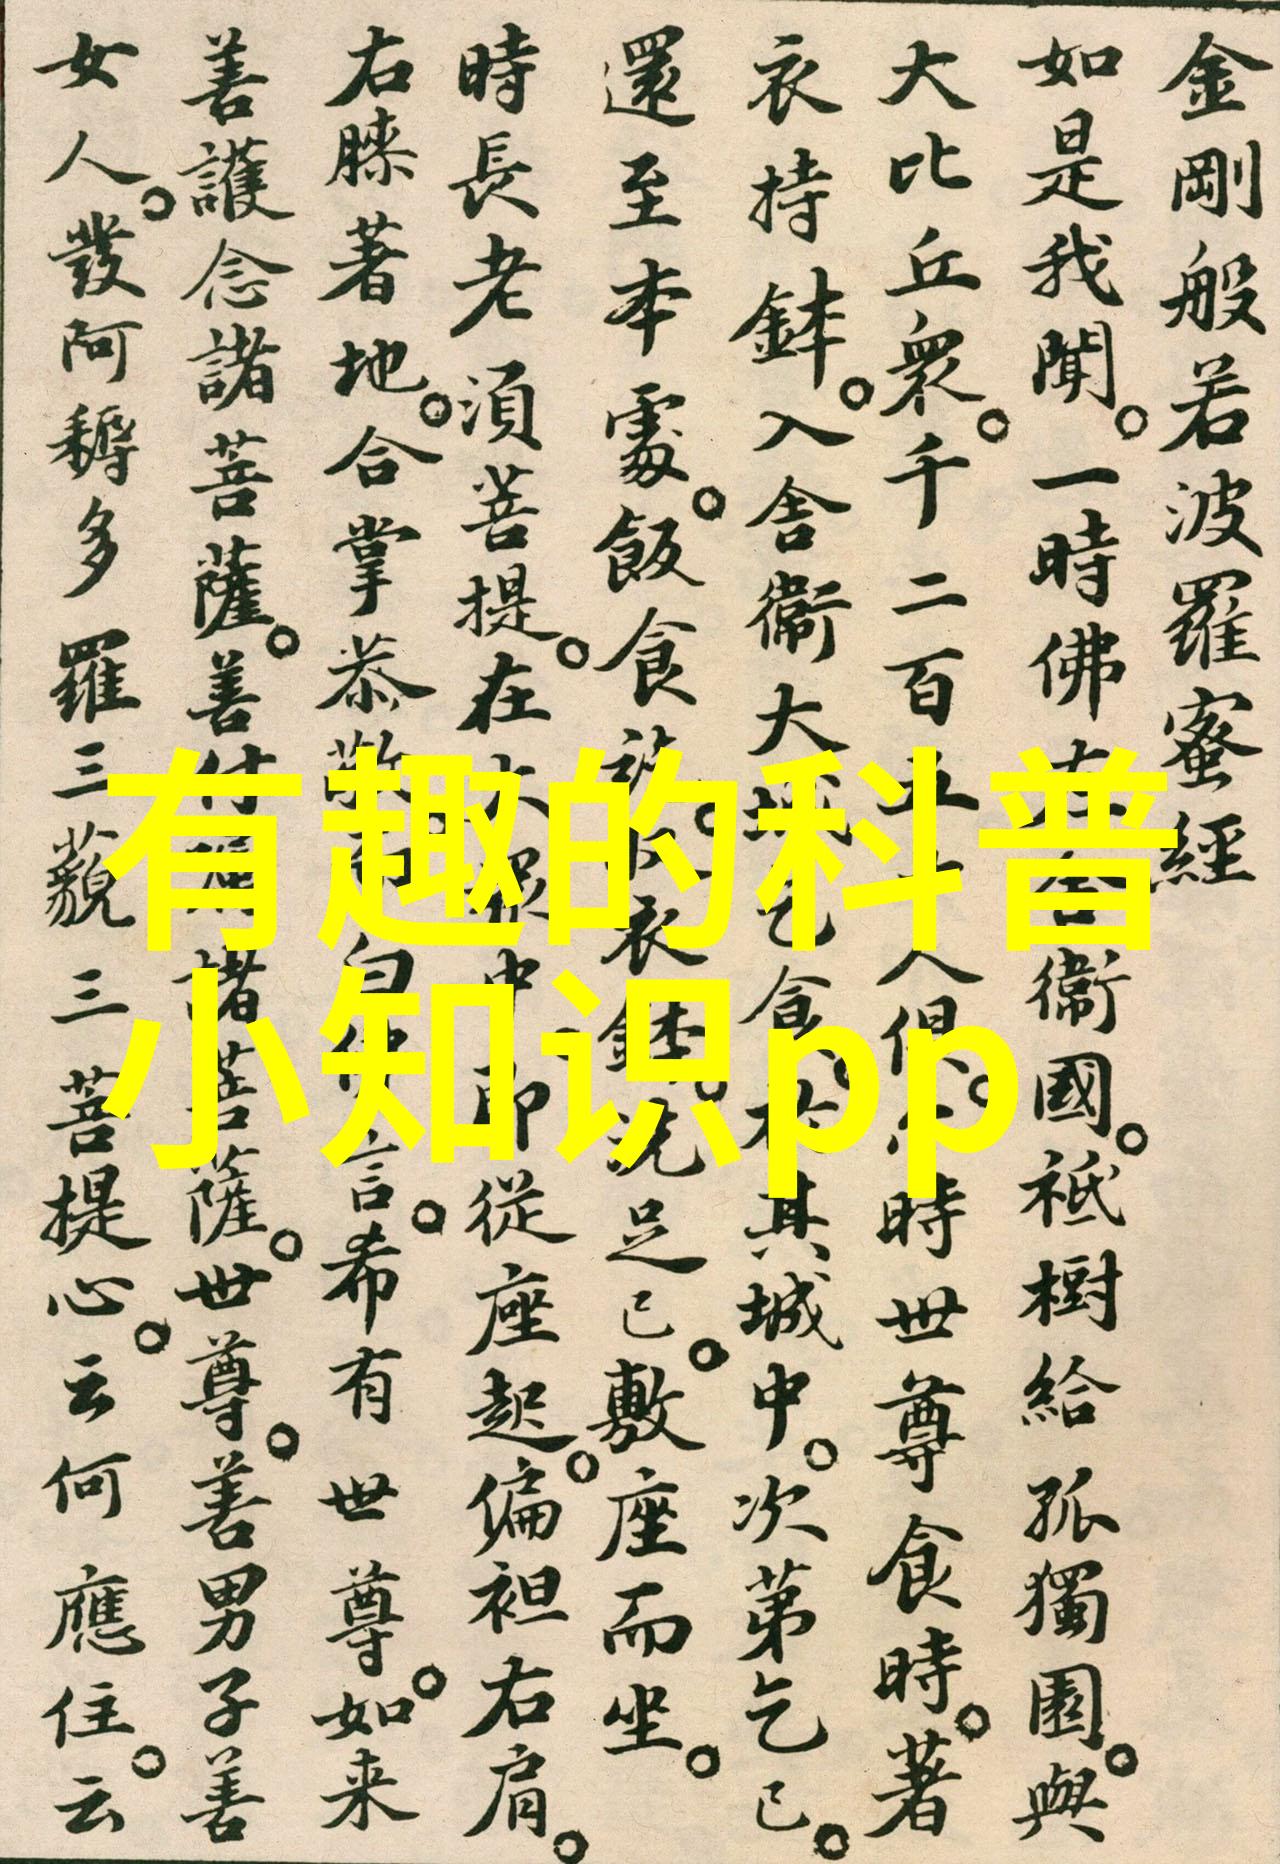 金剛般若波羅蜜經
如是我聞。一時佛在舍衞國。祇樹給孤獨園。與
大比丘衆。千二百五十人俱。尒時世尊食時。著
衣持鉢。入舍衞大城乞食。於其城中。次第乞已。
還至本處。飯食訖。收衣鉢。洗足已。敷座而坐。
時長老湏菩提。在大衆中。即從座起。偏袒右肩。
右膝著地。合掌恭敬。而白佛言。希有世尊。如来
善護念諸菩薩。善付囑諸菩薩。世尊。善男子善
女人。發阿耨多羅三藐三菩提心。云何應住。云
有趣的科普
小知识pp